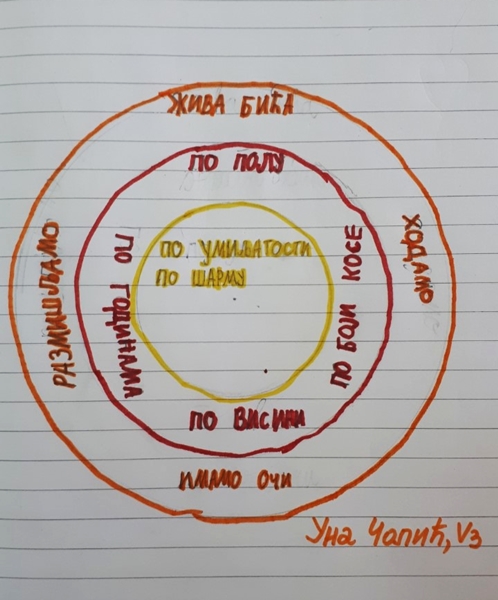 ЖИВА БИЋА
ПО ПОЛУ
РАЗМИШЉАМО
ПО ГОДИНАМА
ПО УМИЉАТОСТИ
ПО ШАРМУ
ПО БОЈИ КОСЕ
ХОДАМО
ПО ВИСИНИ
ИМАМО ОЧИ
Уна Чапић, V3